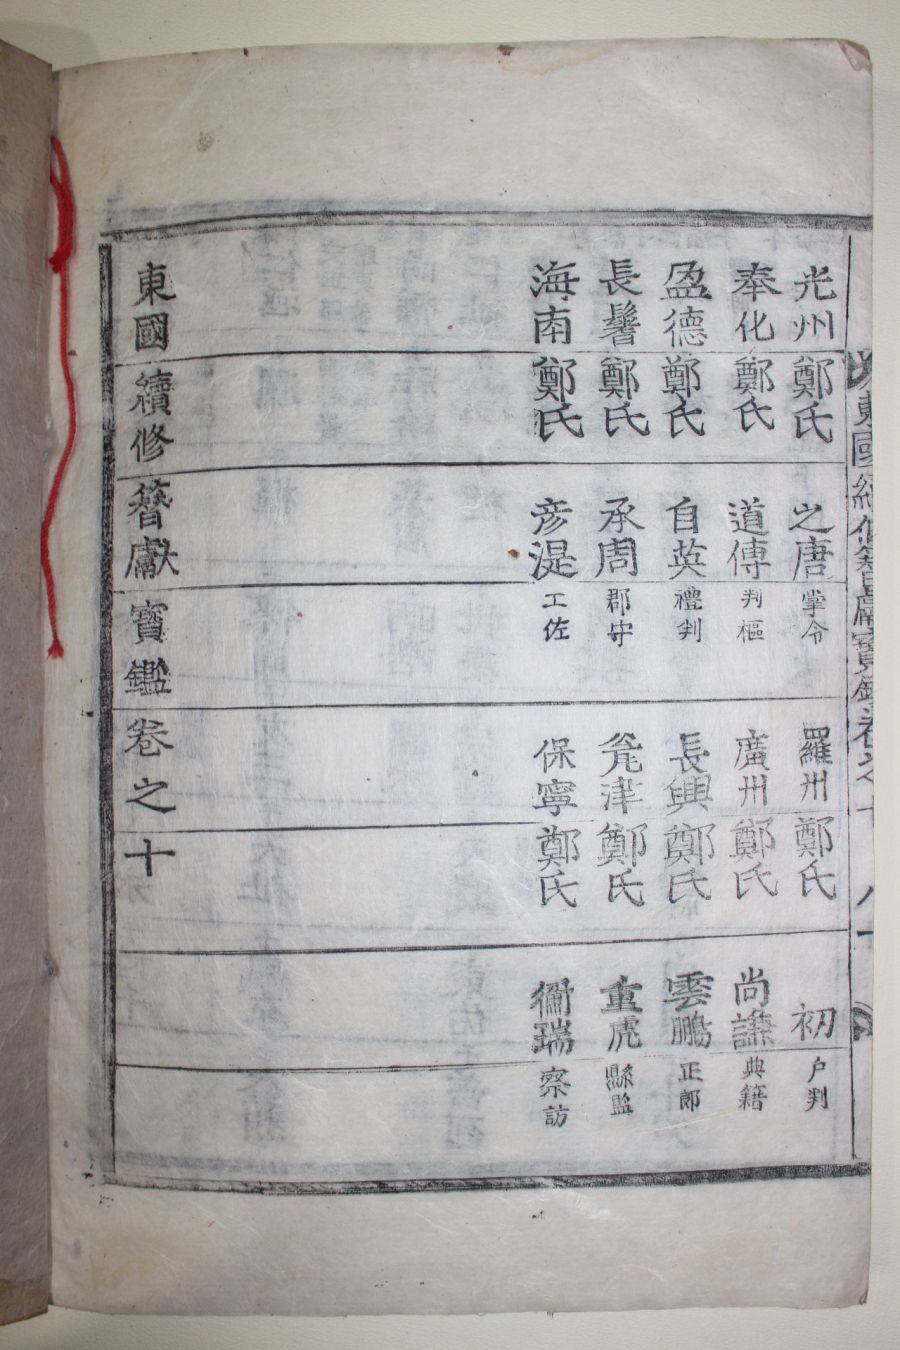 東國續修簪獻寶鑑卷之十 八十
光州 鄭氏 之唐 掌令 羅州 鄭氏 初 户判
奉化 鄭氏 道傳 判樞 廣州 鄭氏 尚謙 典籍
盈德 鄭氏 自英 禮判 長興 鄭氏 雲鵬 正郎
長鬐 鄭氏 承周 郡守 瓮津 鄭氏 重虎 縣監
海南 鄭氏 彦湜 工佐 保寧 鄭氏 瑞 察訪
東國續修簪獻寶鑑卷之十